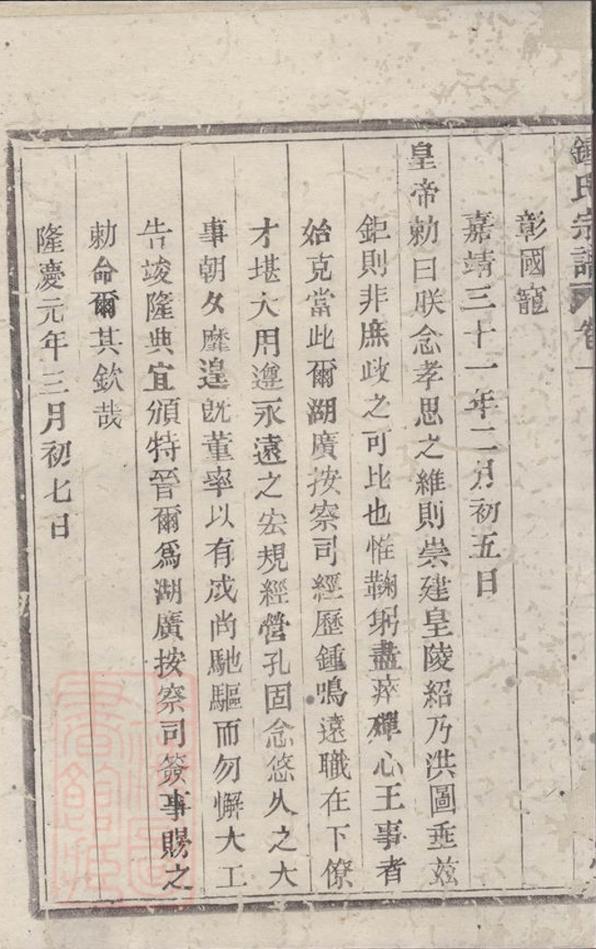 鍾氏宗譜 卷一
彰國寵
嘉靖三十一年二月初五日
皇帝勅曰朕念孝思之維則崇建皇陵紹乃洪圖垂玆
鉅則非庶政之可比也惟鞠躬盡瘁殫心王事者
始克當此爾湖廣按察司經歷鍾鳴遠職在下僚
才堪大用遵永遠之宏規經營孔固念悠久之大
事朝夕靡遑旣董率以有成尚馳驅而勿懈大工
告竣隆典宜頒特晉爾爲湖廣按察司簽事賜之
勅命爾其欽哉
隆慶元年三月初七日